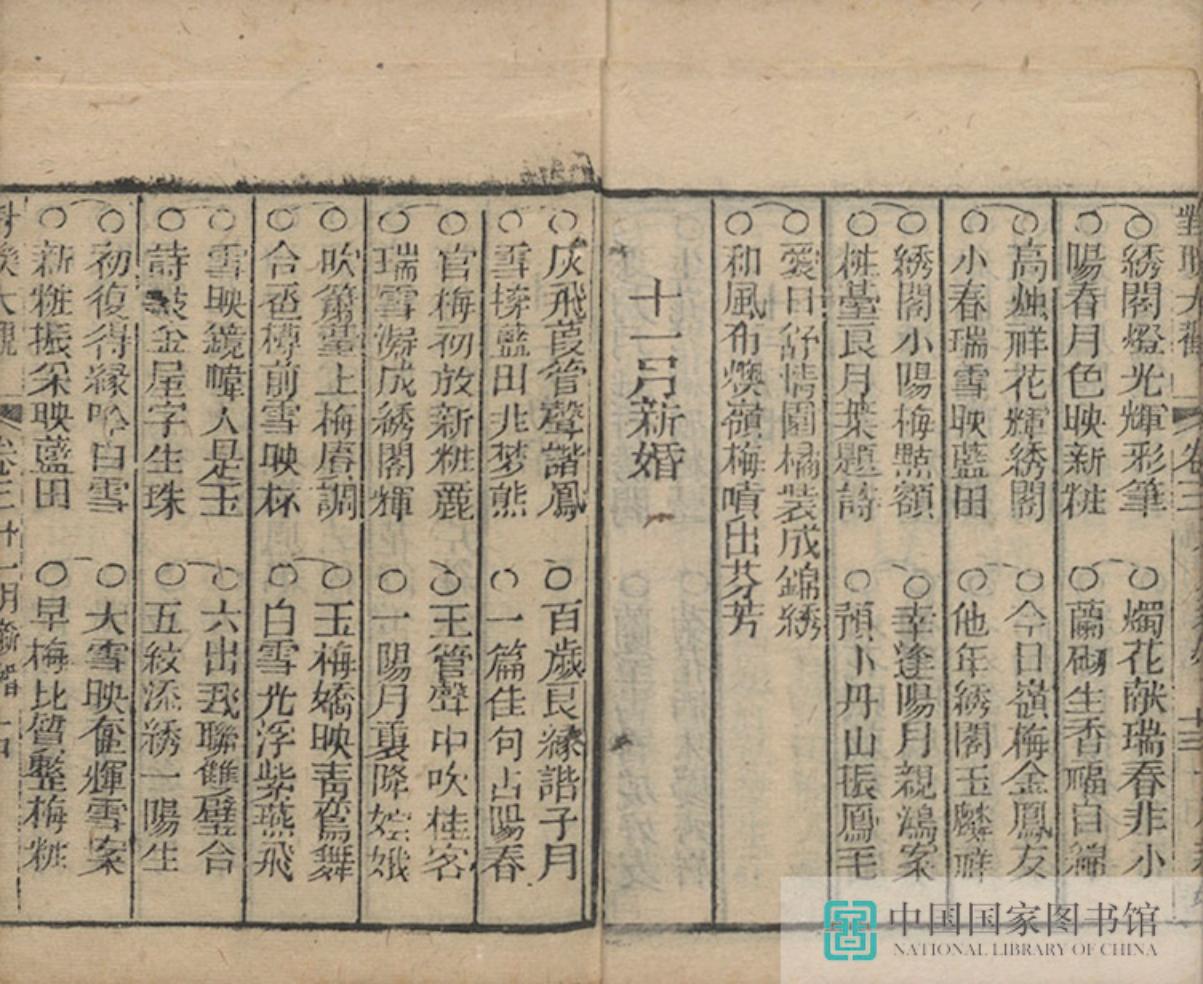 繡閣燈光輝彩筆 燭花献瑞春非小
陽春月色映新粧 蘭砌生香福自綿
高燭祥花輝綉閣 今日嶺梅金鳳友
小春瑞雪映藍田 他年綉閣玉麟祥
綉閣小陽梅㸃額 幸逢陽月親鴻案
粧臺良月葉題詩 預卜丹山振鳳毛
愛日舒情園橘裝成錦綉
和風布燠嶺梅噴出芬芳
十一月新婚
灰飛葭管聲諧鳳 百歲良縁諧子月
雪擁藍田兆梦熊 一篇佳句占陽春
官梅初放新粧麗 玉管聲中吹桂客
瑞雪凝成綉閣輝 一陽月裏降嫦娥
吹簫臺上梅唇調 玉梅嬌映青鸞舞
合巹樽前雪映杯 白雪光浮紫燕飛
雪映鏡幃人是玉 六出飛聯雙璧合
詩敲金屋字生珠 五紋添綉一陽生
初復得縁吟白雪 大雪映奩輝雪案
新粧振采映藍田 早梅比質整梅粧
卷三 十一月新婚 十四
中国国家图书馆
NATIONAL LIBRARY OF CHINA